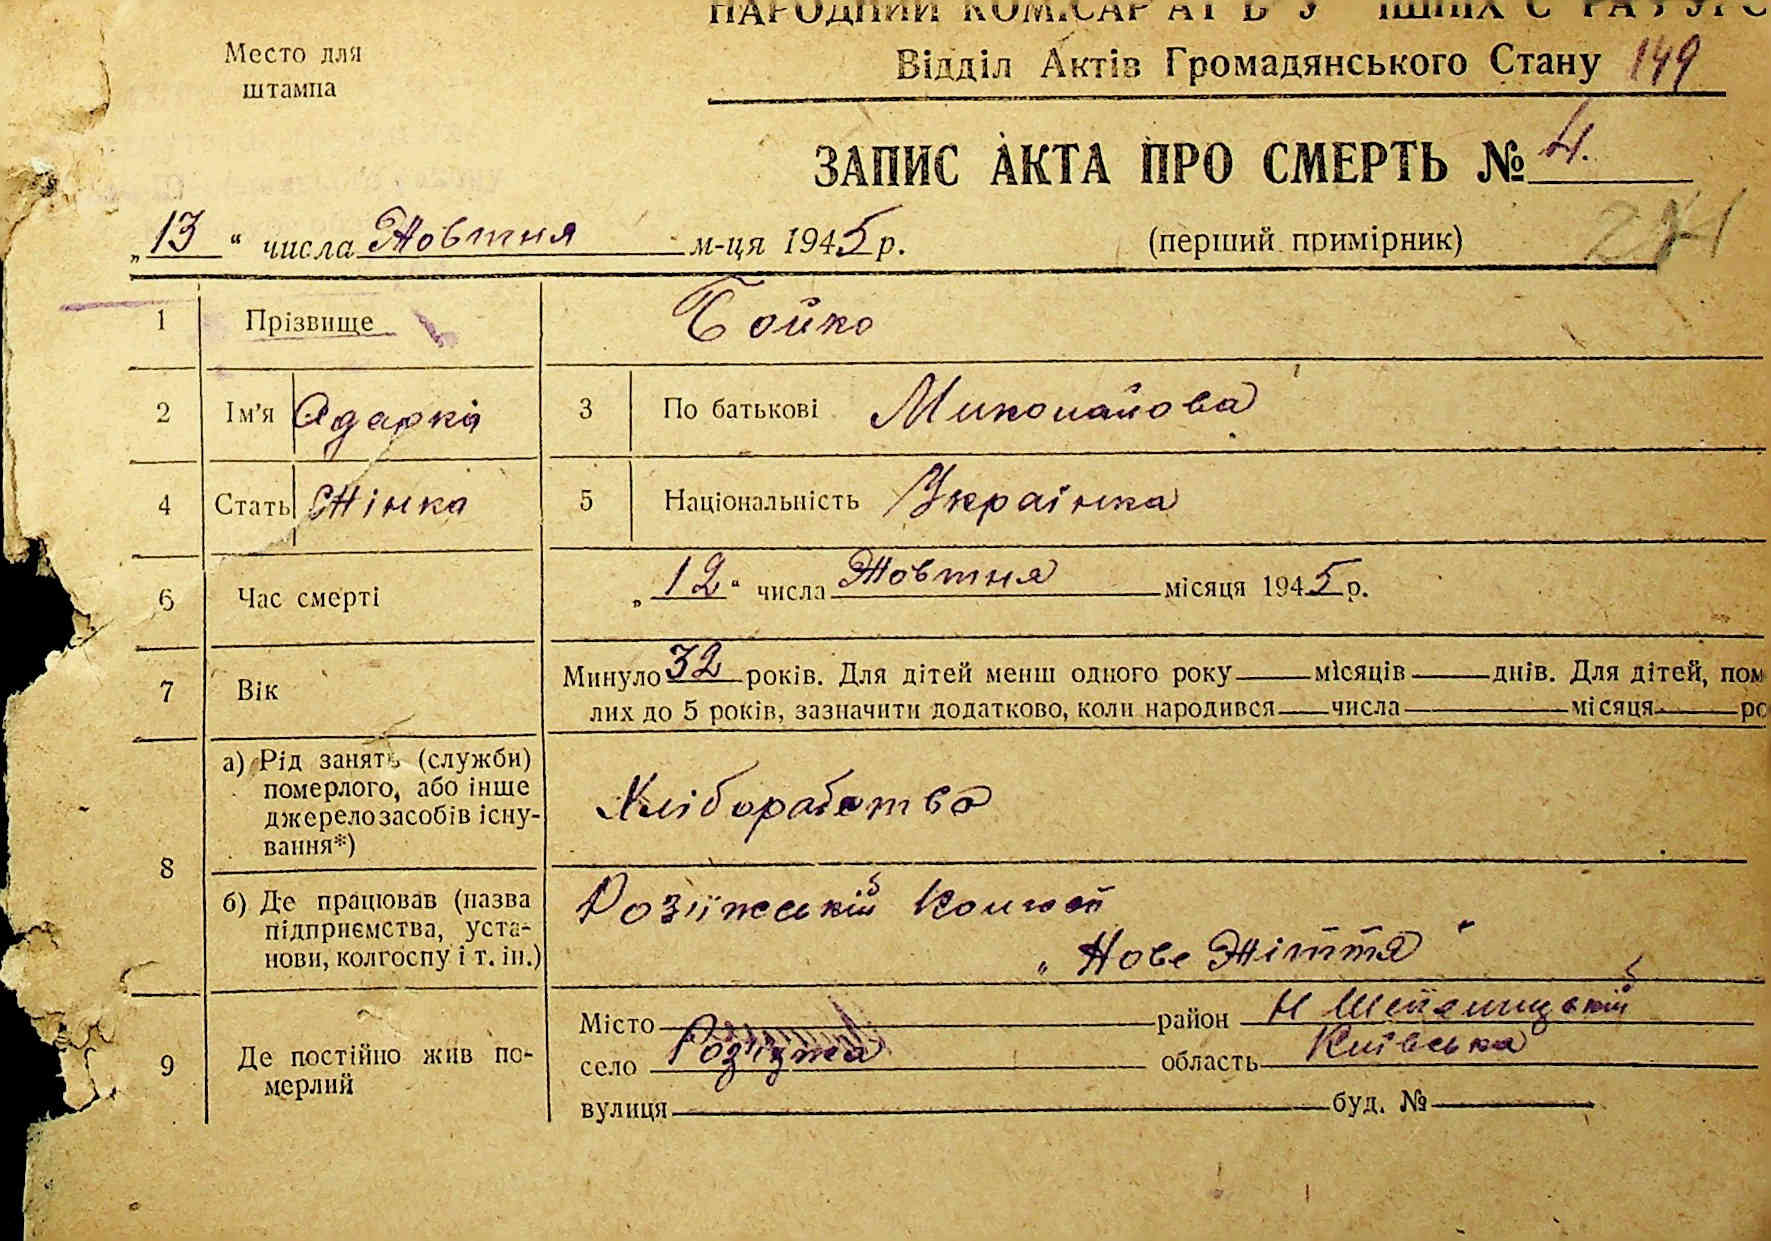 Место для
штампа
Відділ Актів Громадянського Стану 149
ЗАПИС АКТА ПРО СМЕРТЬ № 4.
„13“ числа Жовтня м-ця 1945 р. (перший примірник)
1 Прізвище Бойко
2 Ім'я Одарка 3 По батькові Миколайова
4 Стать Жінка 5 Національність Українка
6 Час смерті „12“ числа Жовтня місяця 1945 р.
7 Вік Минуло 32 років. Для дітей менш одного року місяців днів. Для дітей, пом
лих до 5 років, зазначити додатково, коли народився числа місяця ро
8 а) Рід занять (служби)
померлого, або інше
джерело засобів існу-
вання*)
Хліборобство
б) Де працював (назва
підприємства, уста-
нови, колгоспу і т. ін.)
„Нове Життя“
9 Де постійно жив по-
мерлий
Місто район
село область Київська
вулиця буд. №